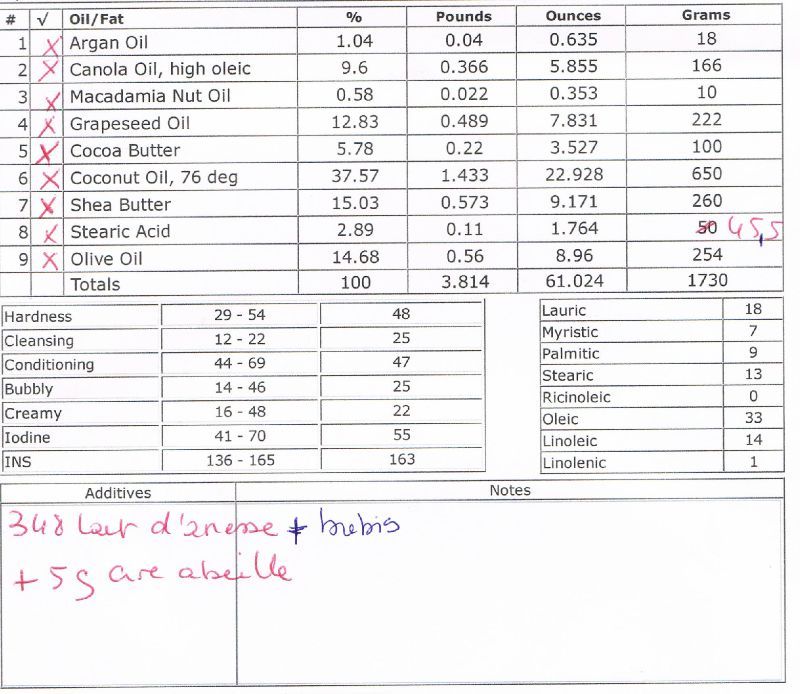 # √ Oil/Fat % Pounds Ounces Grams
1 X Argan Oil 1.04 0.04 0.635 18
2 X Canola Oil, high oleic 9.6 0.366 5.855 166
3 X Macadamia Nut Oil 0.58 0.022 0.353 10
4 X Grapeseed Oil 12.83 0.489 7.831 222
5 X Cocoa Butter 5.78 0.22 3.527 100
6 X Coconut Oil, 76 deg 37.57 1.433 22.928 650
7 X Shea Butter 15.03 0.573 9.171 260
8 X Stearic Acid 2.89 0.11 1.764 50 45,5
9 X Olive Oil 14.68 0.56 8.96 254
Totals 100 3.814 61.024 1730
Hardness 29 - 54 48
Cleansing 12 - 22 25
Conditioning 44 - 69 47
Bubbly 14 - 46 25
Creamy 16 - 48 22
Iodine 41 - 70 55
INS 136 - 165 163
Lauric 18
Myristic 7
Palmitic 9
Stearic 13
Ricinoleic 0
Oleic 33
Linoleic 14
Linolenic 1
Additives Notes
348 lait d'anesse + brebis
+ 5g cire abeille